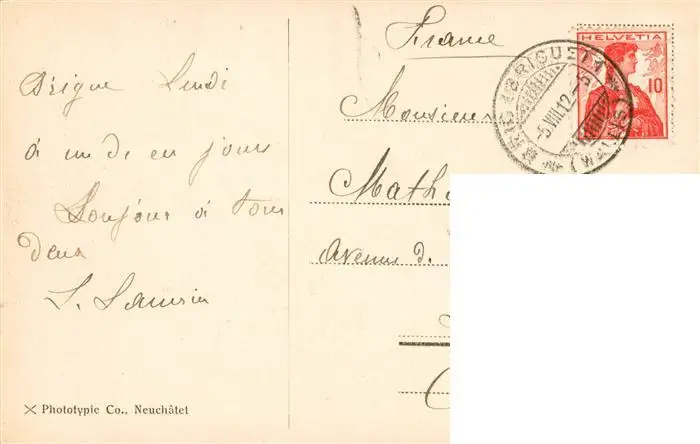 Brigue Lundi
à un de ces jours
Bonjour à tous
deux
France
Monsieur
Math
Avenue d.
HELVETIA
10
BRIGUE
5.VIII.12
(WALLIS)
Phototypie Co., Neuchâtel